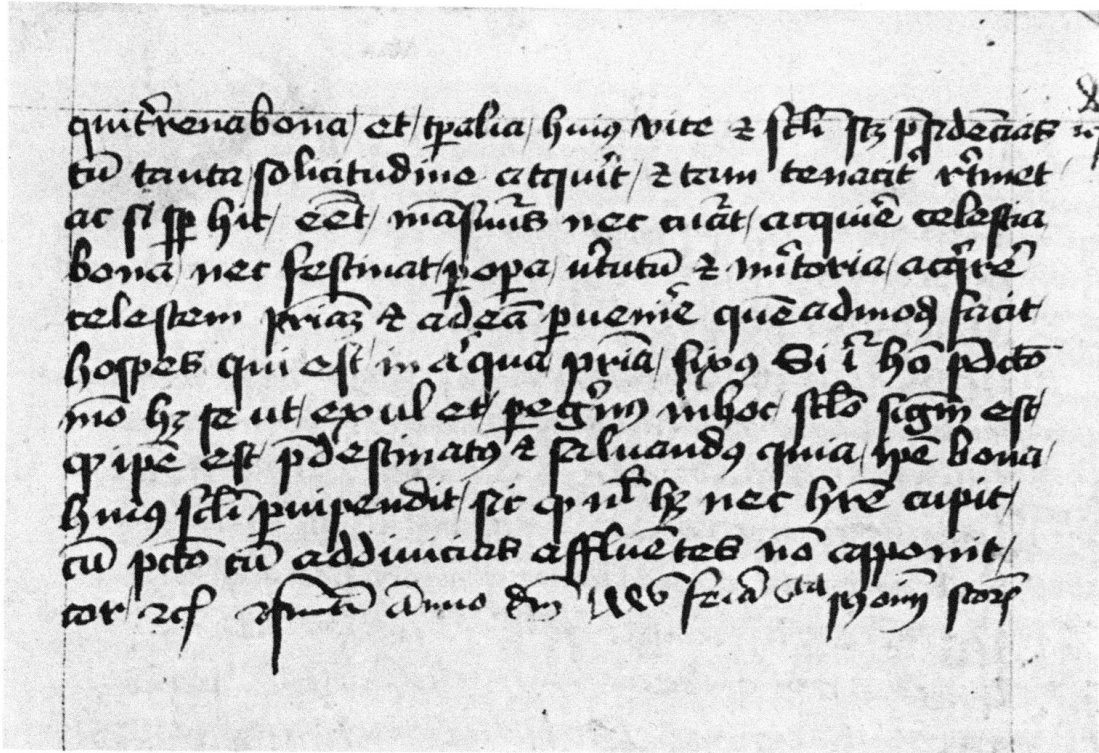 qui t̾rena bona / et / tp̄alia / huiꝰ vite ⁊ scl̄i scꝫ p̄sidēcias
cū tanta / solicitudine acquir̄t / ⁊ tam tenacit̾ r̾tinet
ac si sp̄ hic / eēt / māsur̾ nec curat / acquir̄e celestia
bona / nec festinat / ꝑ oꝑa / v̾tutū ⁊ m̾itoria / acq̾rer̄e
celestem pr̄iaꝫ ⁊ ad eā ꝑvenir̄e quēadmodꝫ facit
hospes qui est / in ali̾qua / pr̄ia / fixꝰ Si i̾ hō p̄dc̄o
mō hꝫ se ut / exul et / ꝑeg̾nꝰ in hoc / scl̄o signū est /
ꝙ ip̄e est p̄destinatꝰ ⁊ saluandꝰ quia / ip̄e bona /
huiꝰ scl̄i ꝑvipendit / sic ꝙ nl̄ hꝫ nec hr̄e cupit /
cū pc̄tō cū ad divicias affluētes nō apponit /
cor / ⁊c̄ anno dn̄i feria oīm sc̄oꝝ